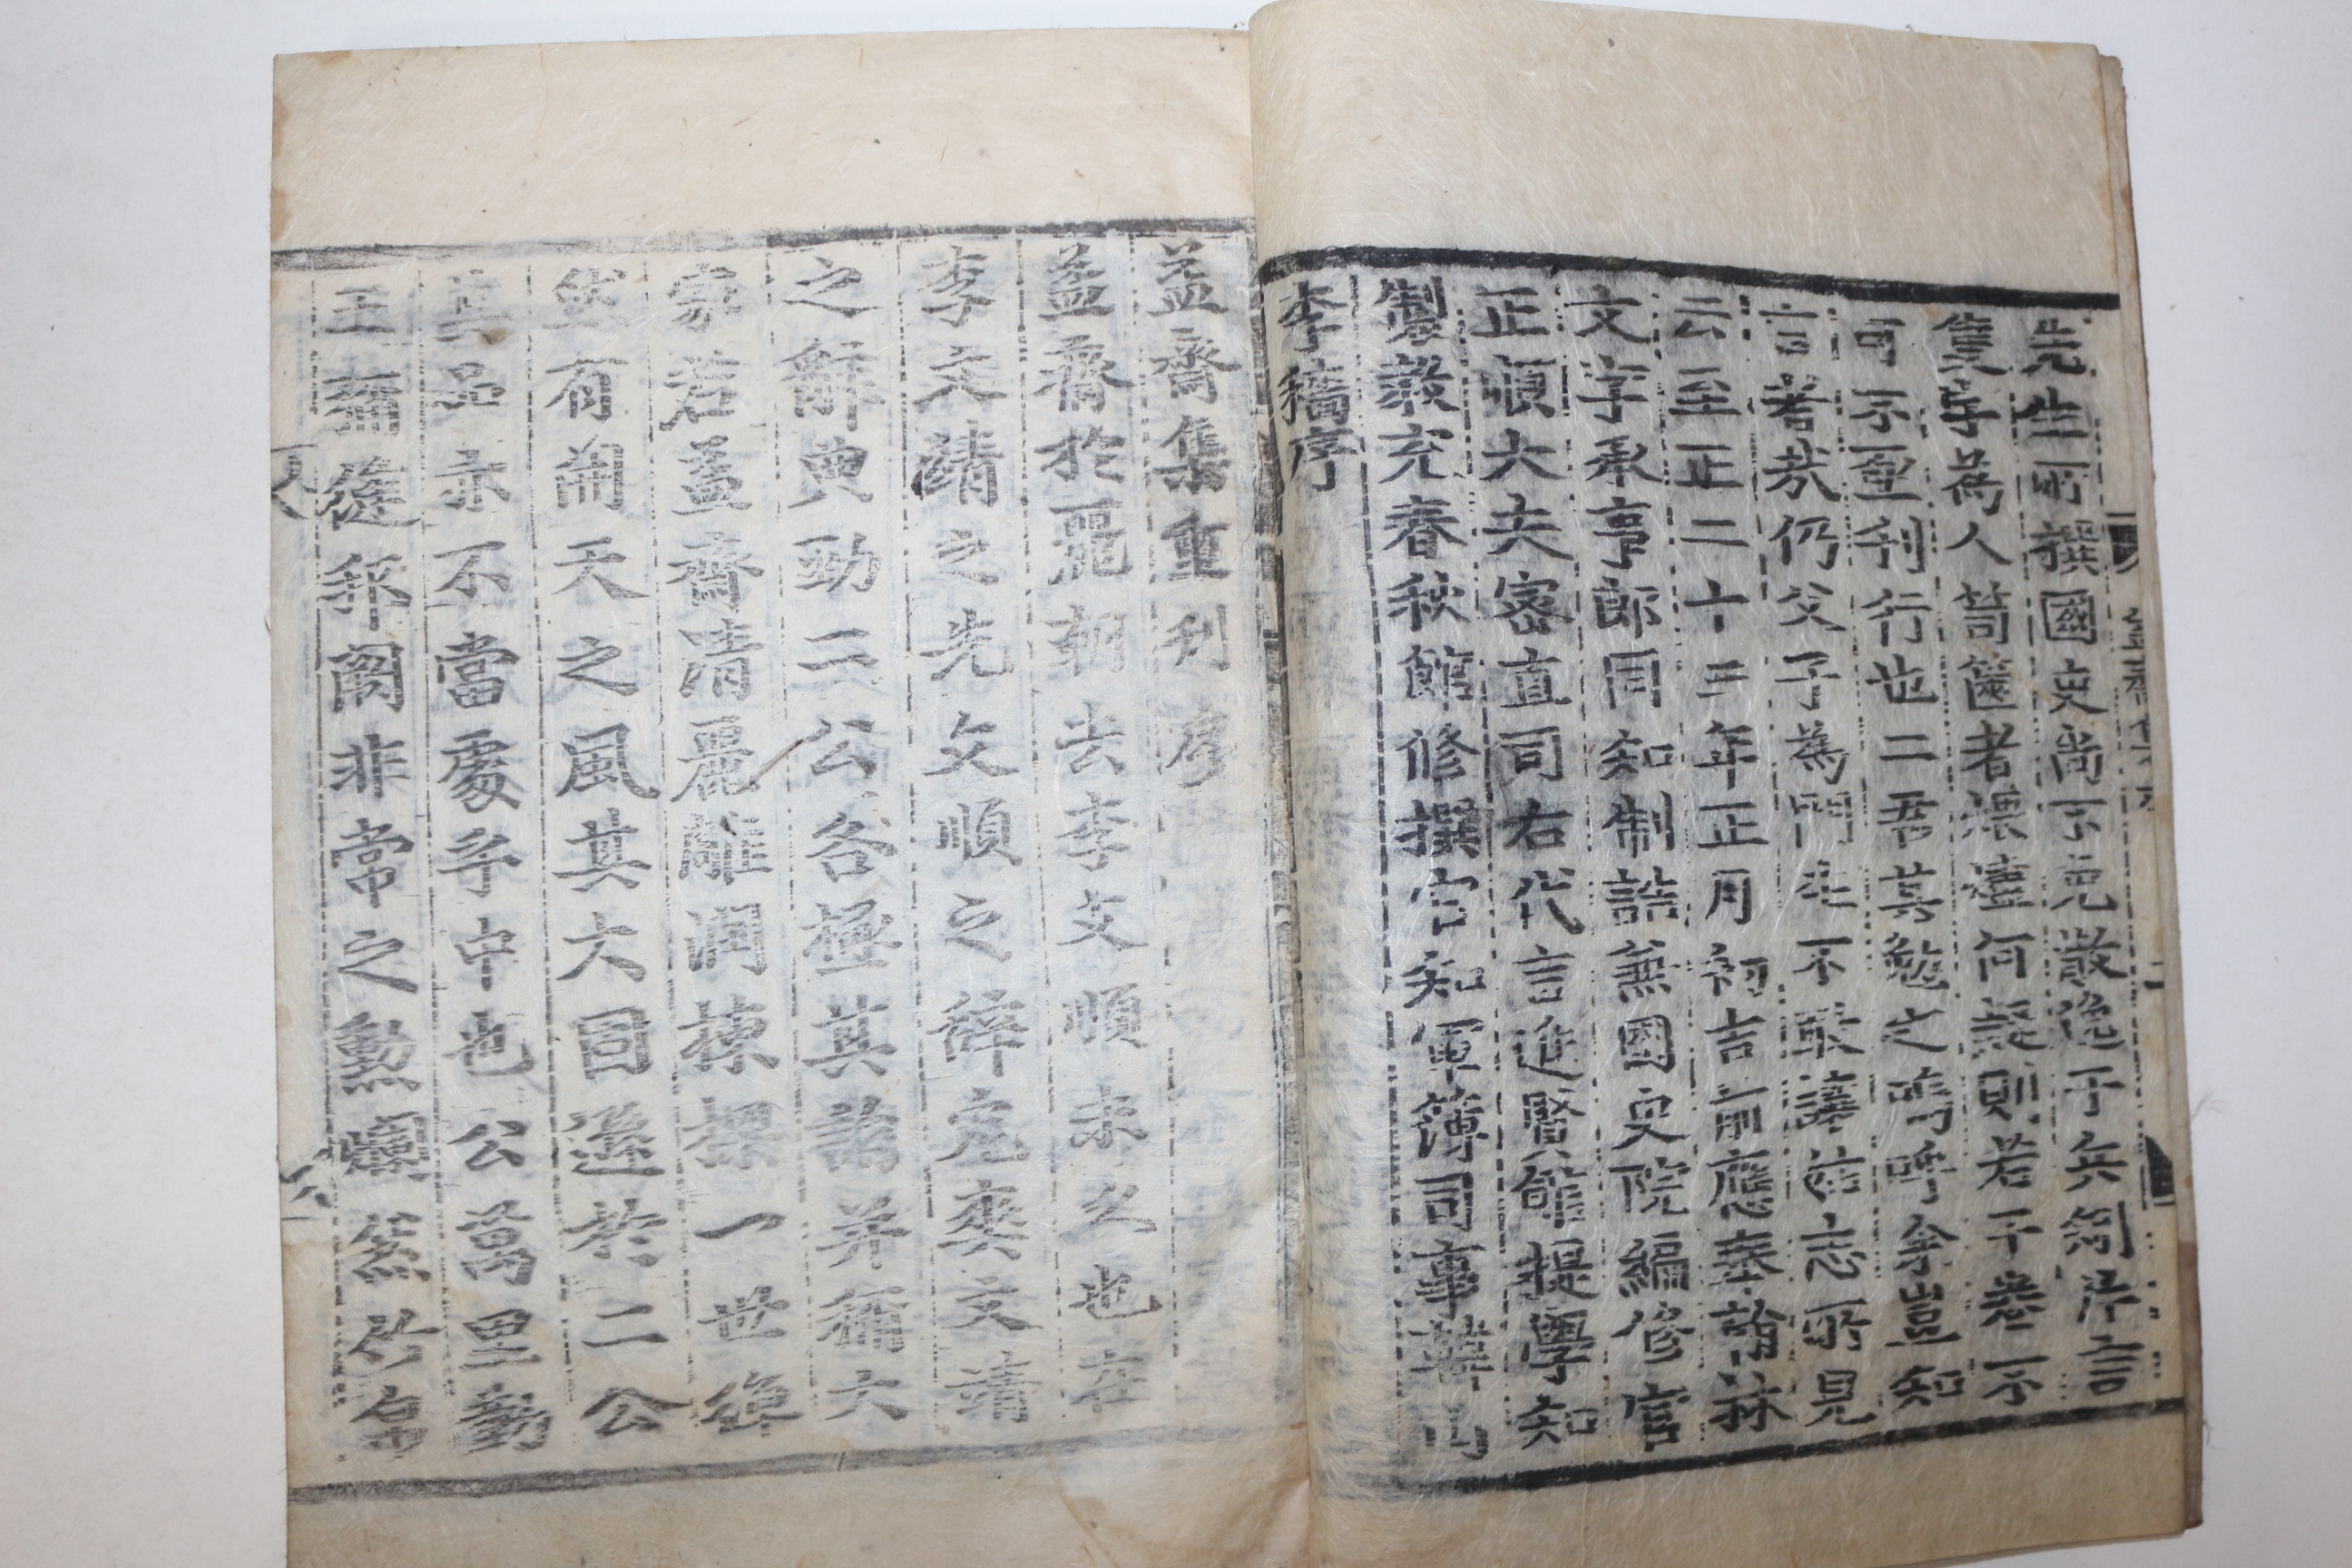 先生所撰國史尚不免散逸于兵刓片言
隻字爲人笥篋者湮燼何疑則若干卷不
可不亟刊行也二君其勉之嗚呼余豈知
言者哉仍父子爲門生不敢讓姑志所見
云至正二十三年正月初吉前應奉翰林
文字承事郎同知制誥兼國史院編修官
正順大夫密直司右代言進賢館提學知
製敎充春秋館修撰官知軍簿司事韓山
李穡序
益齋集重刊序
益齋於麗朝去李文順未久也右
李文靖之先文順之辭宏奧文靖
之辭典勁二公各極其詣并稱大
家若益齋淸麗雅潤菽檏一世絶
然有開天之風其大固遜於二公
其品亦不當處乎中也公萬里勤
王蒲縫釆闔非常之勳爛然竹帛